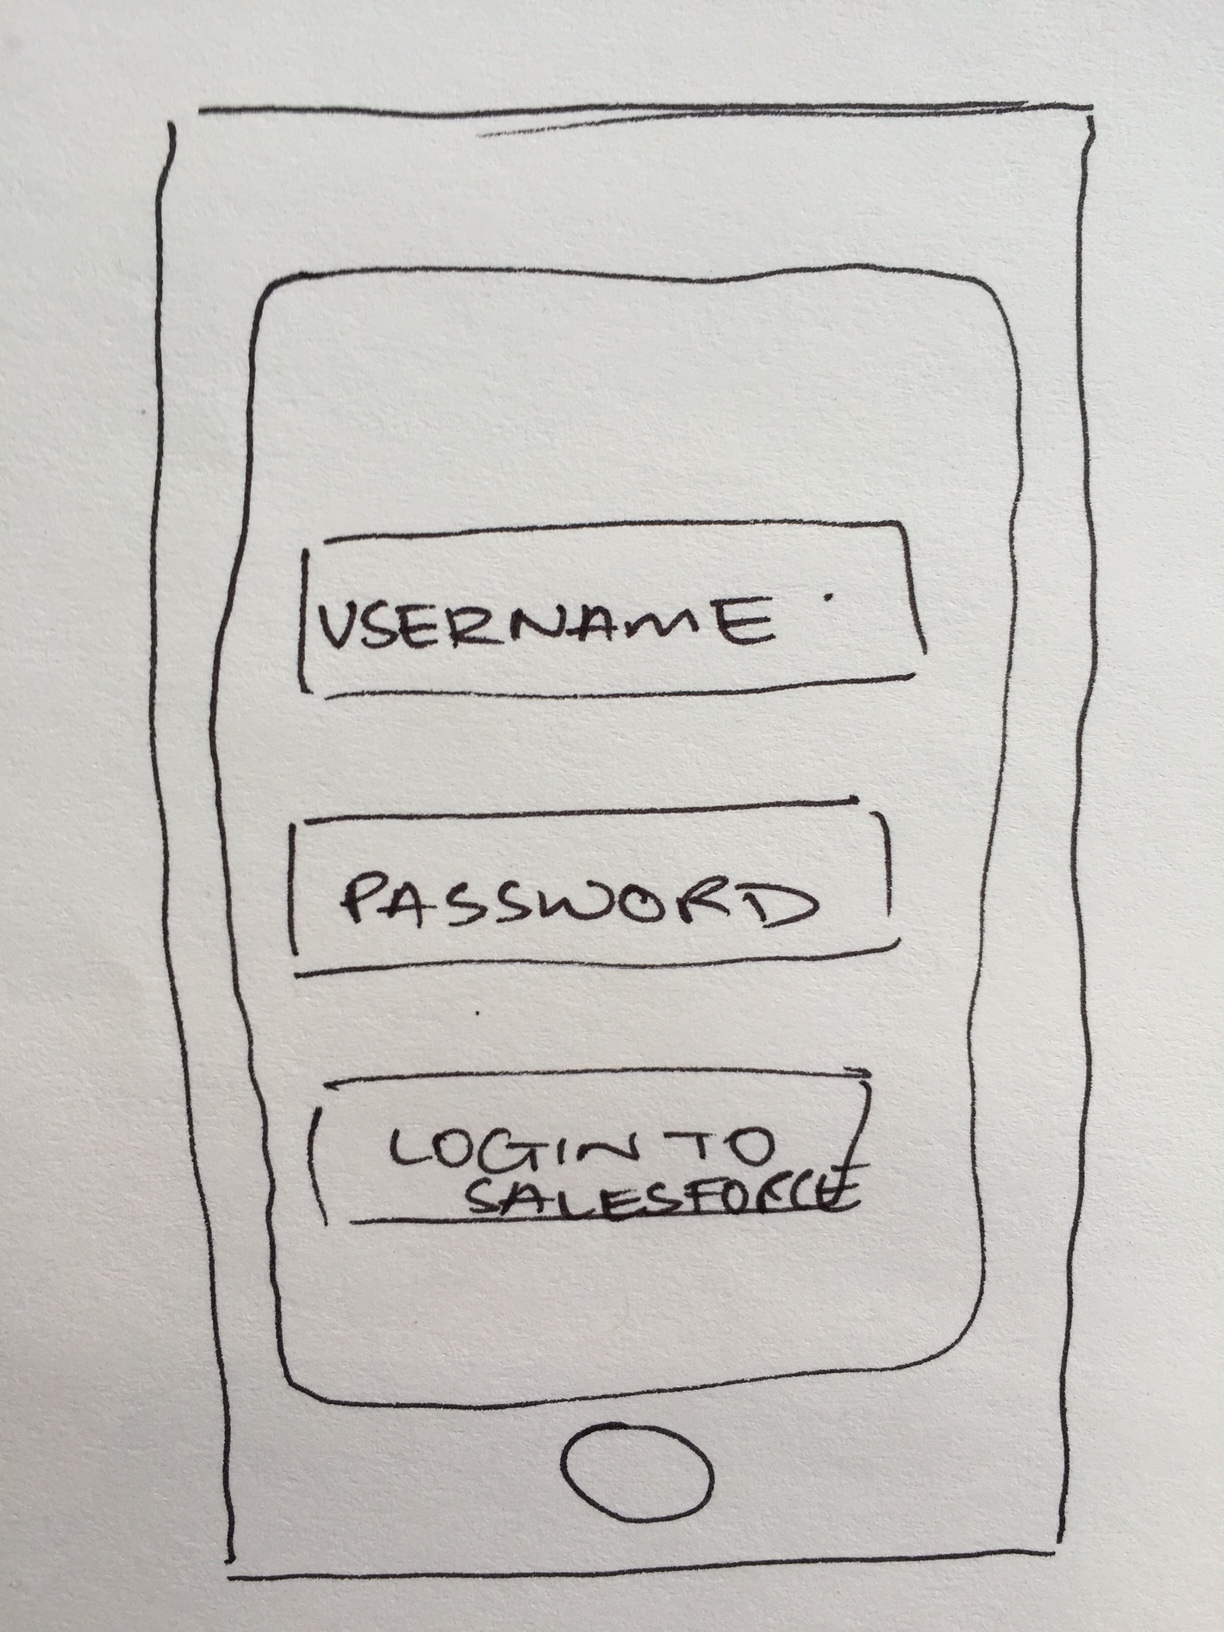 USERNAME
PASSWORD
LOGIN TO
SALESFORCE